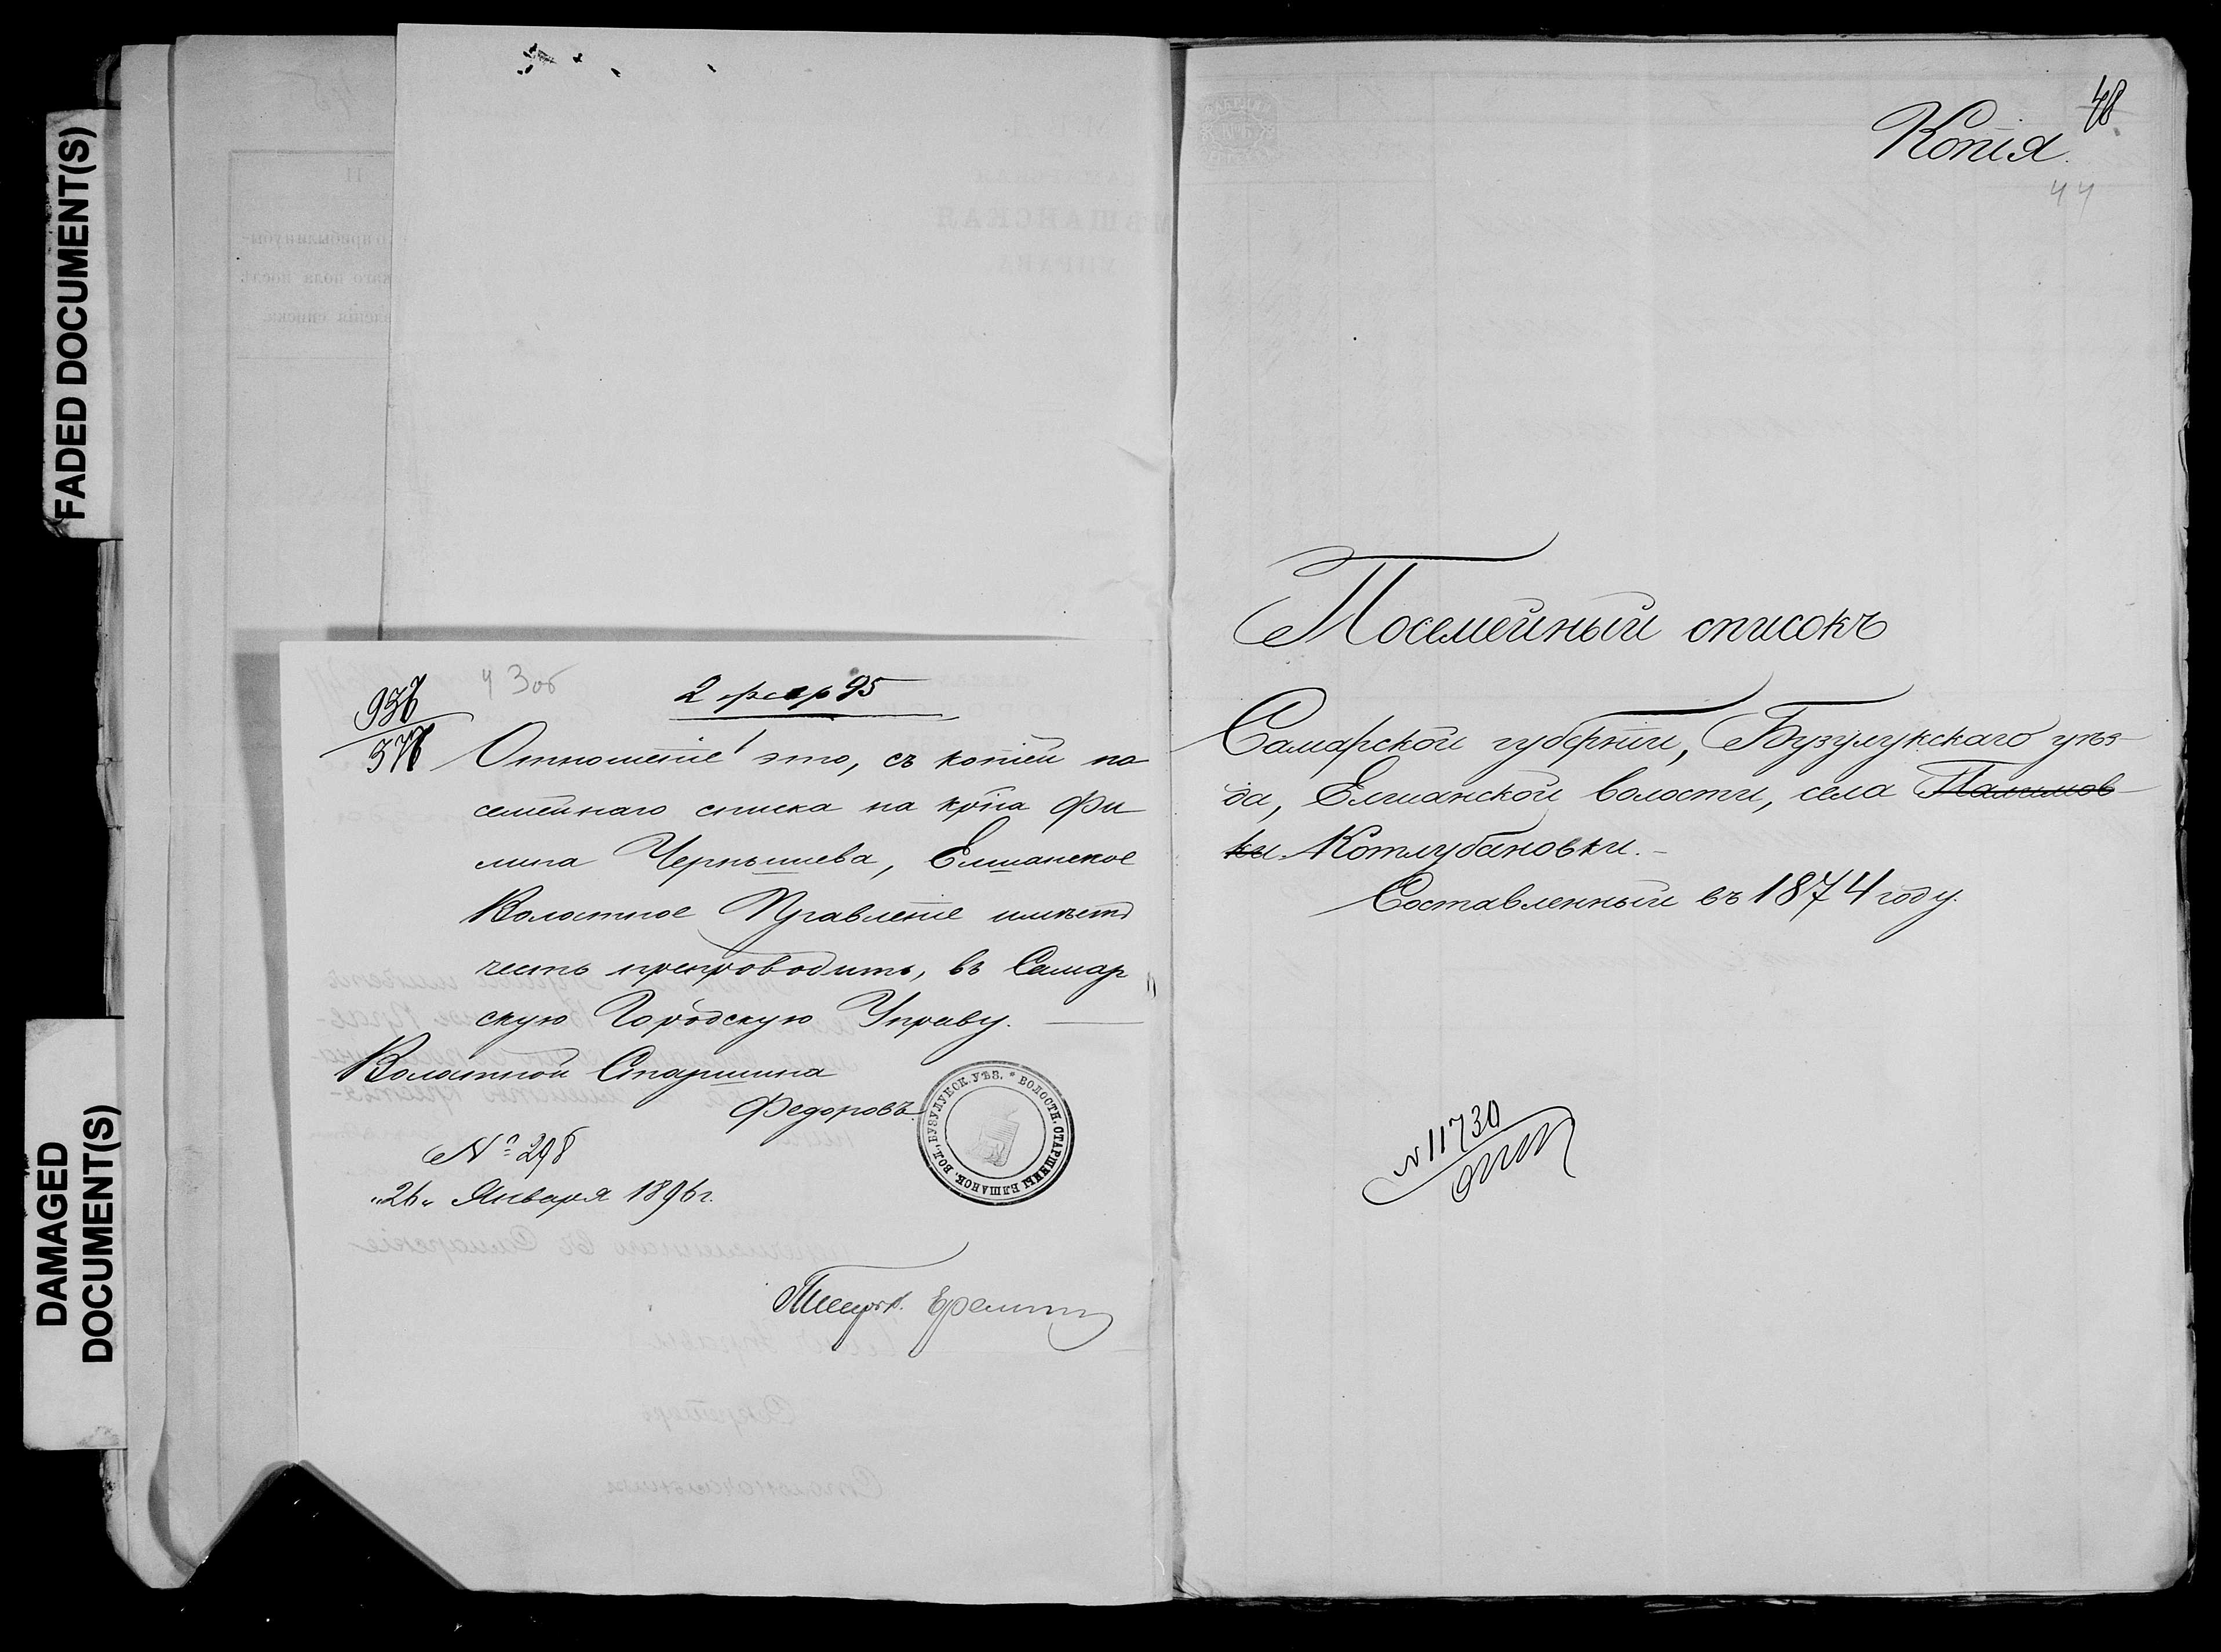 FADED DOCUMENT(S)
DAMAGED
DOCUMENT(S)
43об
2 февр 95
Отношеніе это, съ копіей по
семейнаго списка на крна Фи
липа Чернышева, Елшанское
Волостное Правленіе имѣетъ
честь препроводить, въ Самар
скую Городскую Управу.
Волостной Старшина
Федоровъ.
№ 298
"26" Января 1896 г.
Писарь Еремин
ВОЛОСТН. СТАРШИНЫ ЕЛШАНОВ. ВОЛ. БУЗУЛУКСК. УѢЗ. *
48
Копія.
44
Посемейный списокъ
Самарской губерніи, Бузулукскаго уѣз-
да, Елшанской волости, села Палимов-
ки Котлубановки.-
Составленный въ 1874 году.
№ 11730